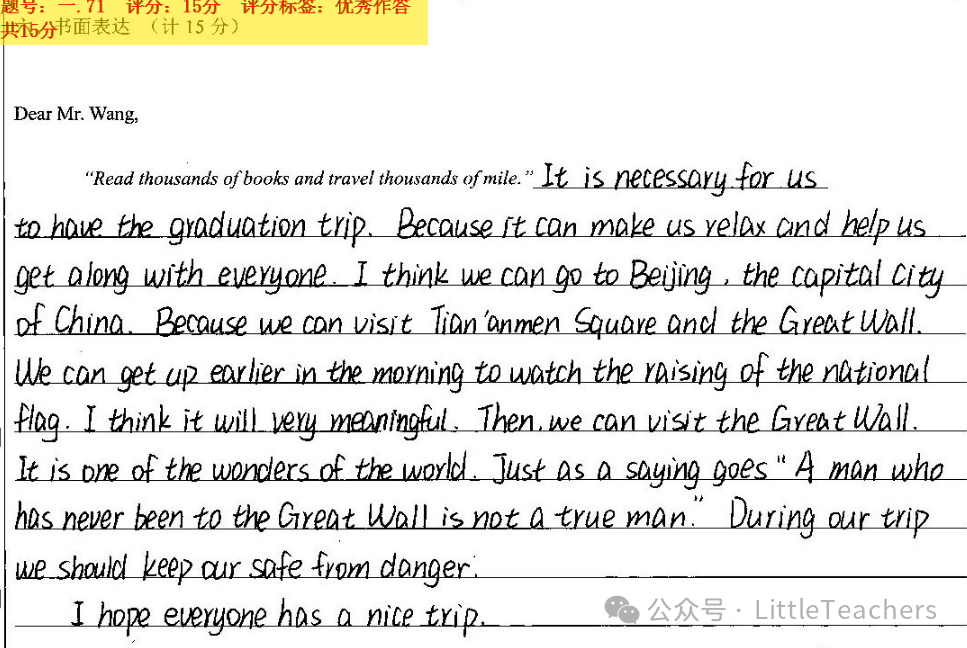 题号：一. 71 评分：15分 评分标签：优秀作答
共15分
书面表达 （计 15 分）
Dear Mr. Wang,
"Read thousands of books and travel thousands of mile." It is necessary for us
to have the graduation trip. Because it can make us relax and help us
get along with everyone. I think we can go to Beijing, the capital city
of China. Because we can visit Tian'anmen Square and the Great Wall.
We can get up earlier in the morning to watch the raising of the national
flag. I think it will very meaningful. Then, we can visit the Great Wall.
It is one of the wonders of the world. Just as a saying goes "A man who
has never been to the Great Wall is not a true man." During our trip
we should keep our safe from danger.
I hope everyone has a nice trip.
公众号 · LittleTeachers